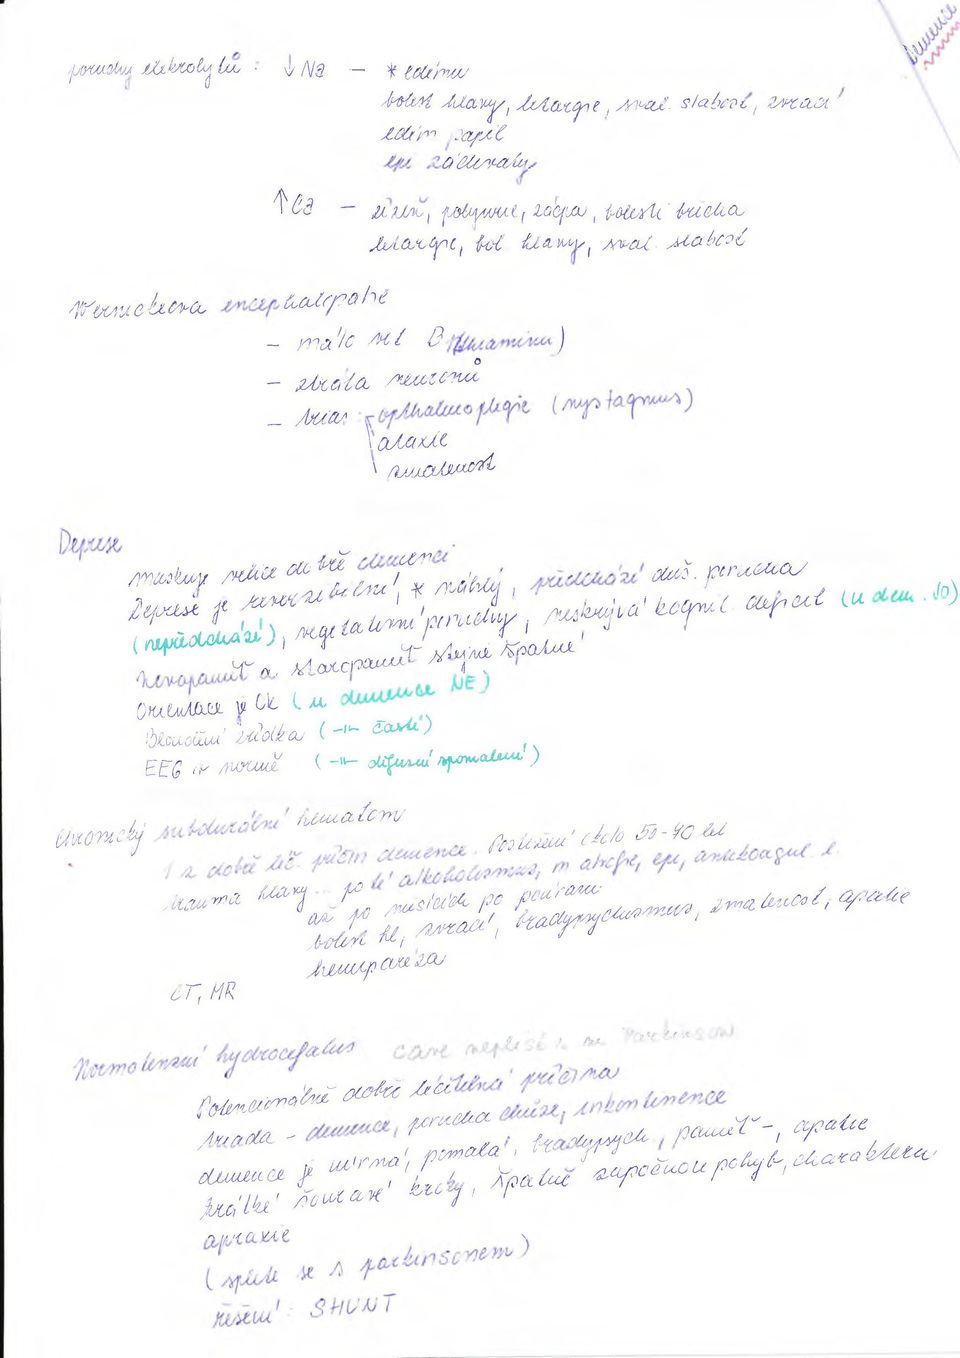 Demence
poruchy elektrolytů : ↓ Na — * edému
bolest hlavy, letargie, sval. slabost, zvrací
edém papil
epi záchvaty
↑ Ca — žízeň, polyurie, zácpa, bolesti břicha
letargie, bol. hlavy, sval. slabost
Wernickeova encephalopatie
– málo vit B1 (thiaminu)
– ztráta neuronů
– trias : ophthalmoplegie (nystagmus)
ataxie
zmatenost
Deprese
maskuje velice dobře demenci
Deprese je reverzibilní, * náhlý, předchází duš. porucha
(nepředchází), vegetativní poruchy, neskrývá kognit. deficit (u dem. JO)
Novopaměť a staropaměť stejně špatně
Orientace je Ok (u demence NE)
Bloudění zřídka ( –"– časté)
EEG v normě ( –"– difusní zpomalení)
Chronický subdurální hematom
1 z dobře léč. příčin demence. Postižení okolo 50-70 let
trauma hlavy ... po té alkoholismus, m atrofie, epi, antikoagul. l.
až po měsících po poranění
bolest hl, zvrací, bradypsychismus, zmatenost, apatie
hemiparéza
CT, MR
Normotenzní hydrocefalus care neplést si se Parkinson
Potencionálně dobře léčitelná příčina
triada – demence, porucha chůze, inkontinence
demence je mírná, pomalá, bradypsych., paměť –, apatie
krátké šouravé kroky, špatně započnou pohyb, charakteru
apraxie
(splete se s parkinsonem)
řešení : SHUNT